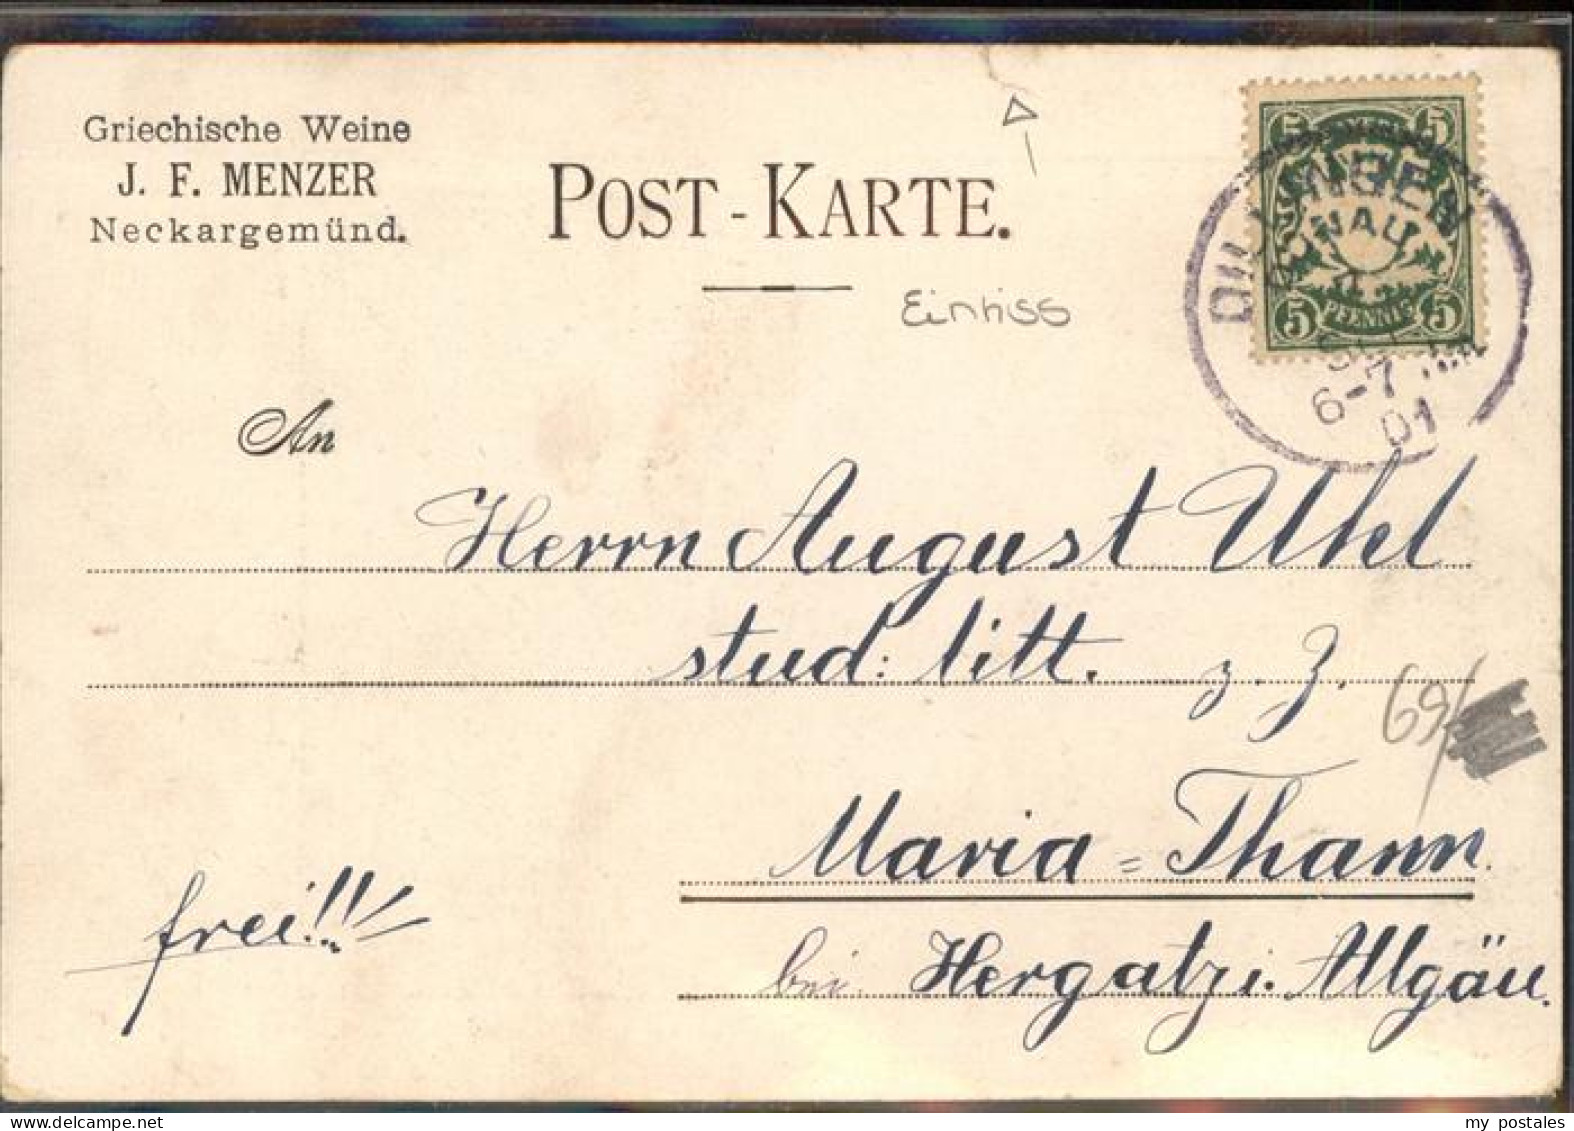 Griechische Weine
J. F. MENZER
Neckargemünd.
POST-KARTE.
Einriss
5 5
5 PFENNIG 5
DILLINGEN
6-7
01
An
Herrn August Uhl
stud: litt. z. Z.
69/
Maria=Thann.
frei!!!
bei Hergatz i. Allgäu.
my postales